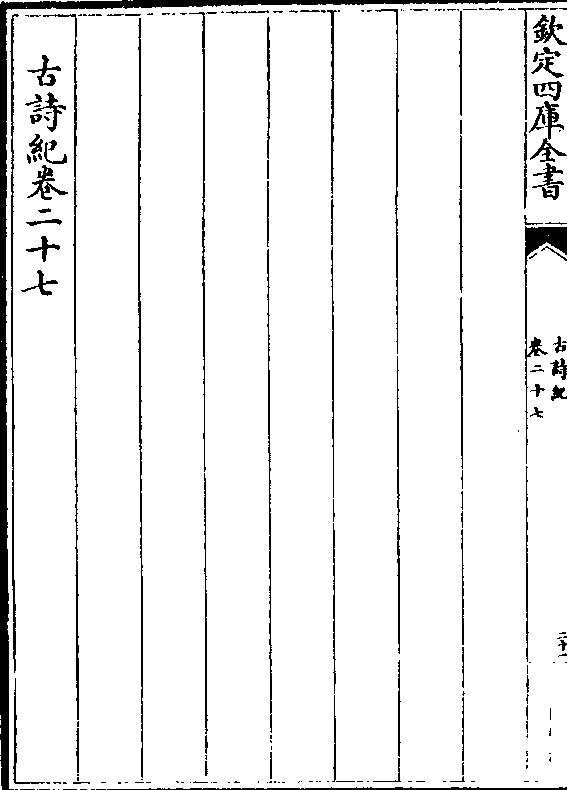 欽定四庫全書
古詩紀
卷二十七
古詩紀卷二十七